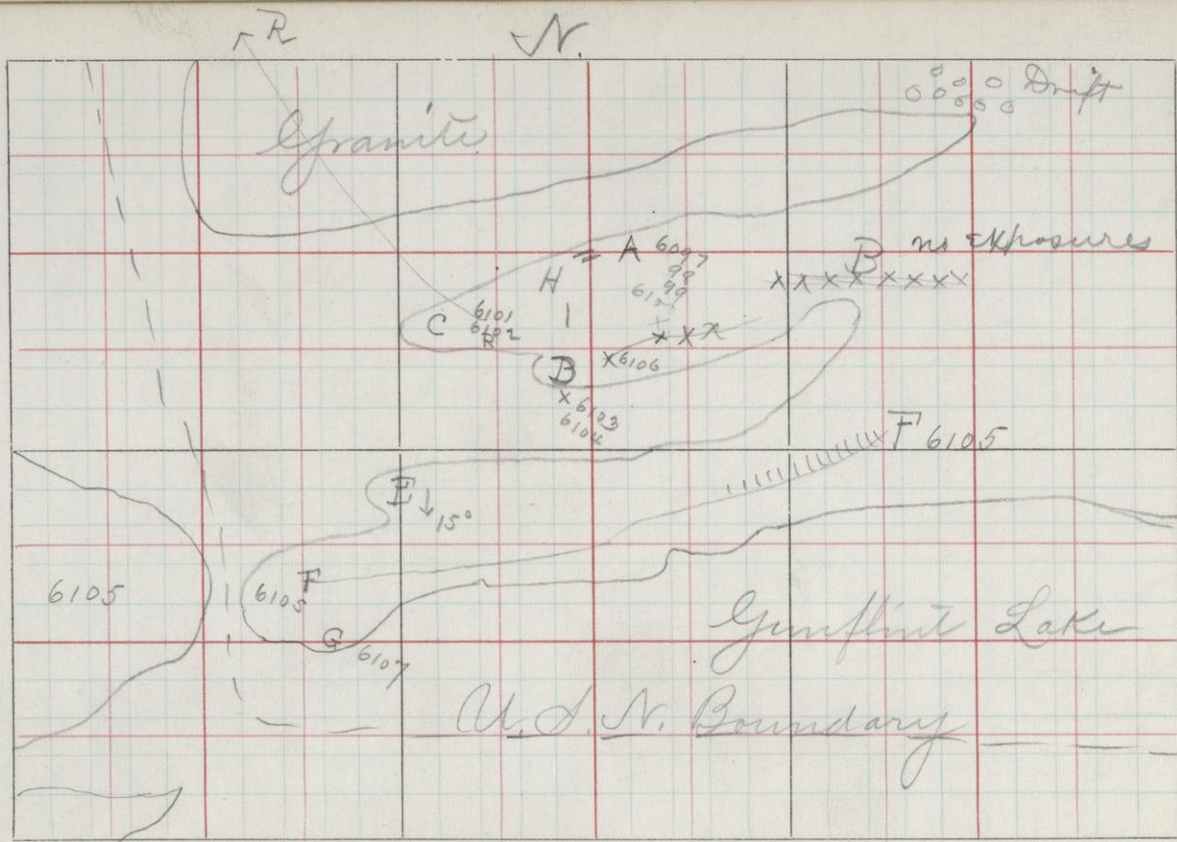 R
N.
Drift
Granite
A 6097
98
99
H
B no Exposures
x x x x x x x x
C 6101
6102
R
x x x
x 6106
B
x 6103
6104
F 6105
E 15°
6105
6105 F
G 6107
Gunflint Lake
U.S.N. Boundary